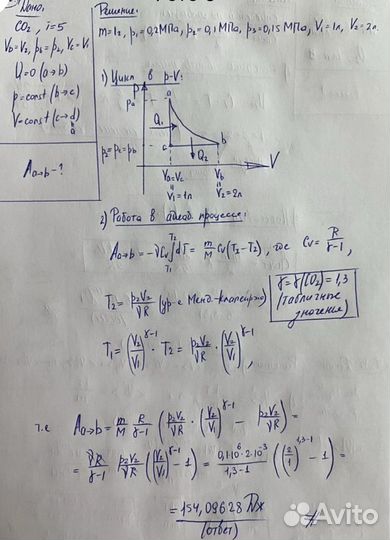 Дано:
CO₂, i=5
V_b=V₂, p_b=p₂, V_c=V₁
Q=0 (a→b)
p=const (b→c)
V=const (c→d)
a
A_{a→b} - ?
Решение:
m=1г, p₁=0,2МПа, p₂=0,1МПа, p₃=0,15МПа, V₁=1л, V₂=2л.
1) Цикл в p-V:
P
a
Pa
Q₁
p₂=p_c=p_b
c
b
Q₂
V
V_a=V_c
V_b
V₁=1л
V₂=2л
2) Работа в адиаб. процессе:
A_{a→b} = -νC_v ∫_{T₁}^{T₂} dT = m/M C_v(T₂-T₂), где C_v = R/(γ-1),
T₂ = p₂V₂/νR (ур-е Менд-Клапейрона)
γ=γ(CO₂)=1,3
(табличное
значение)
T₁ = (V₂/V₁)^{γ-1} · T₂ = p₂V₂/νR · (V₂/V₁)^{γ-1},
т.е A_{a→b} = m/M R/(γ-1) (p₂V₂/νR · (V₂/V₁)^{γ-1} - p₂V₂/νR) =
= νR/(γ-1) p₂V₂/νR ((V₂/V₁)^{γ-1} - 1) = 0,1·10⁶·2·10⁻³/(1,3-1) ((2/1)^{1,3-1} - 1) =
= 154,09628 Дж
(ответ)
Avito